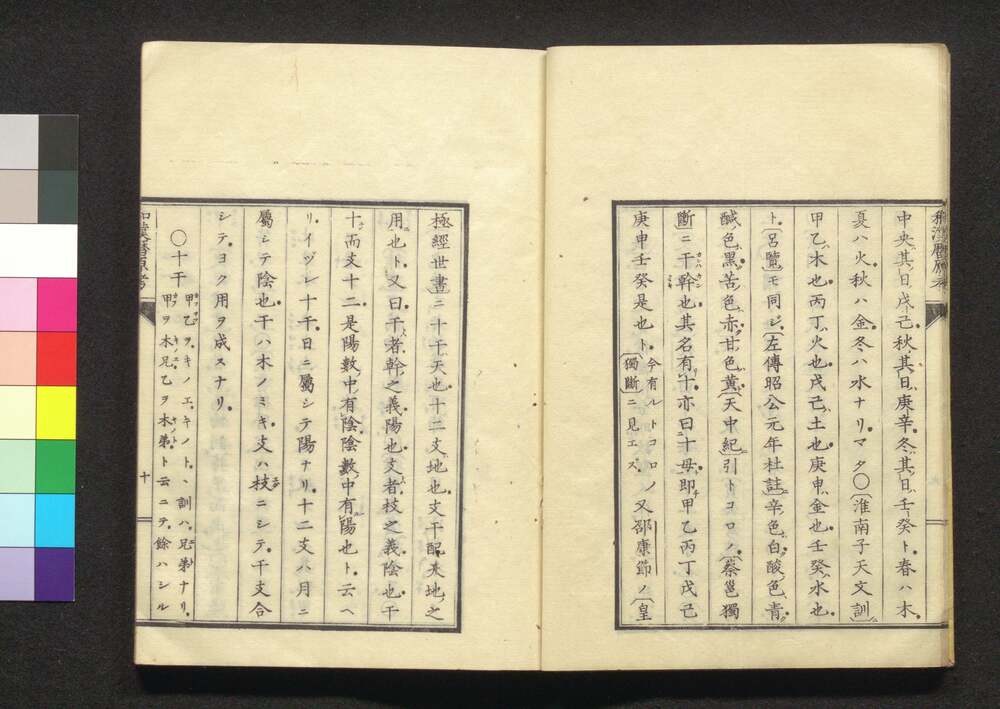 中央其日戊己。秋其日庚辛。冬其日壬癸ト。春ハ木
夏ハ火秋ハ金冬ハ水ナリ。マタ〇〔淮南子天文訓〕
甲乙木也丙丁火也戊己土也庚申金也壬癸水也
ト。〔呂覽〕モ同ジ。〔左傳昭公元年杜註〕辛色白酸色青
鹹色黒苦色赤甘色黄〔天中紀〕引トコロノ〔蔡邕獨
斷〕ニ干幹也其名有十亦曰十母即甲乙丙丁戊己
庚申壬癸是也ト。今有ルトコロノ〔獨斷〕ニ見エズ。又邵康節ノ〔皇
極經世書〕ニ十干天也十二支地也支干配天地之
用也ト又曰干者幹之義陽也支者枝之義陰也干
十而支十二是陽數中有陰陰數中有陽也ト云ヘ
リ。イヅレ十干日ニ屬シテ陽ナリ。十二支ハ月ニ
屬シテ陰也干ハ木ノミキ支ハ枝ニシテ干支合
シテ。ヨク用ヲ成スナリ。
〇十干 甲乙ヲ。キノエ。キノト、訓ハ。兄弟ナリ。
甲ヲ木兄乙ヲ木弟ト云ニテ。餘ハシル
十